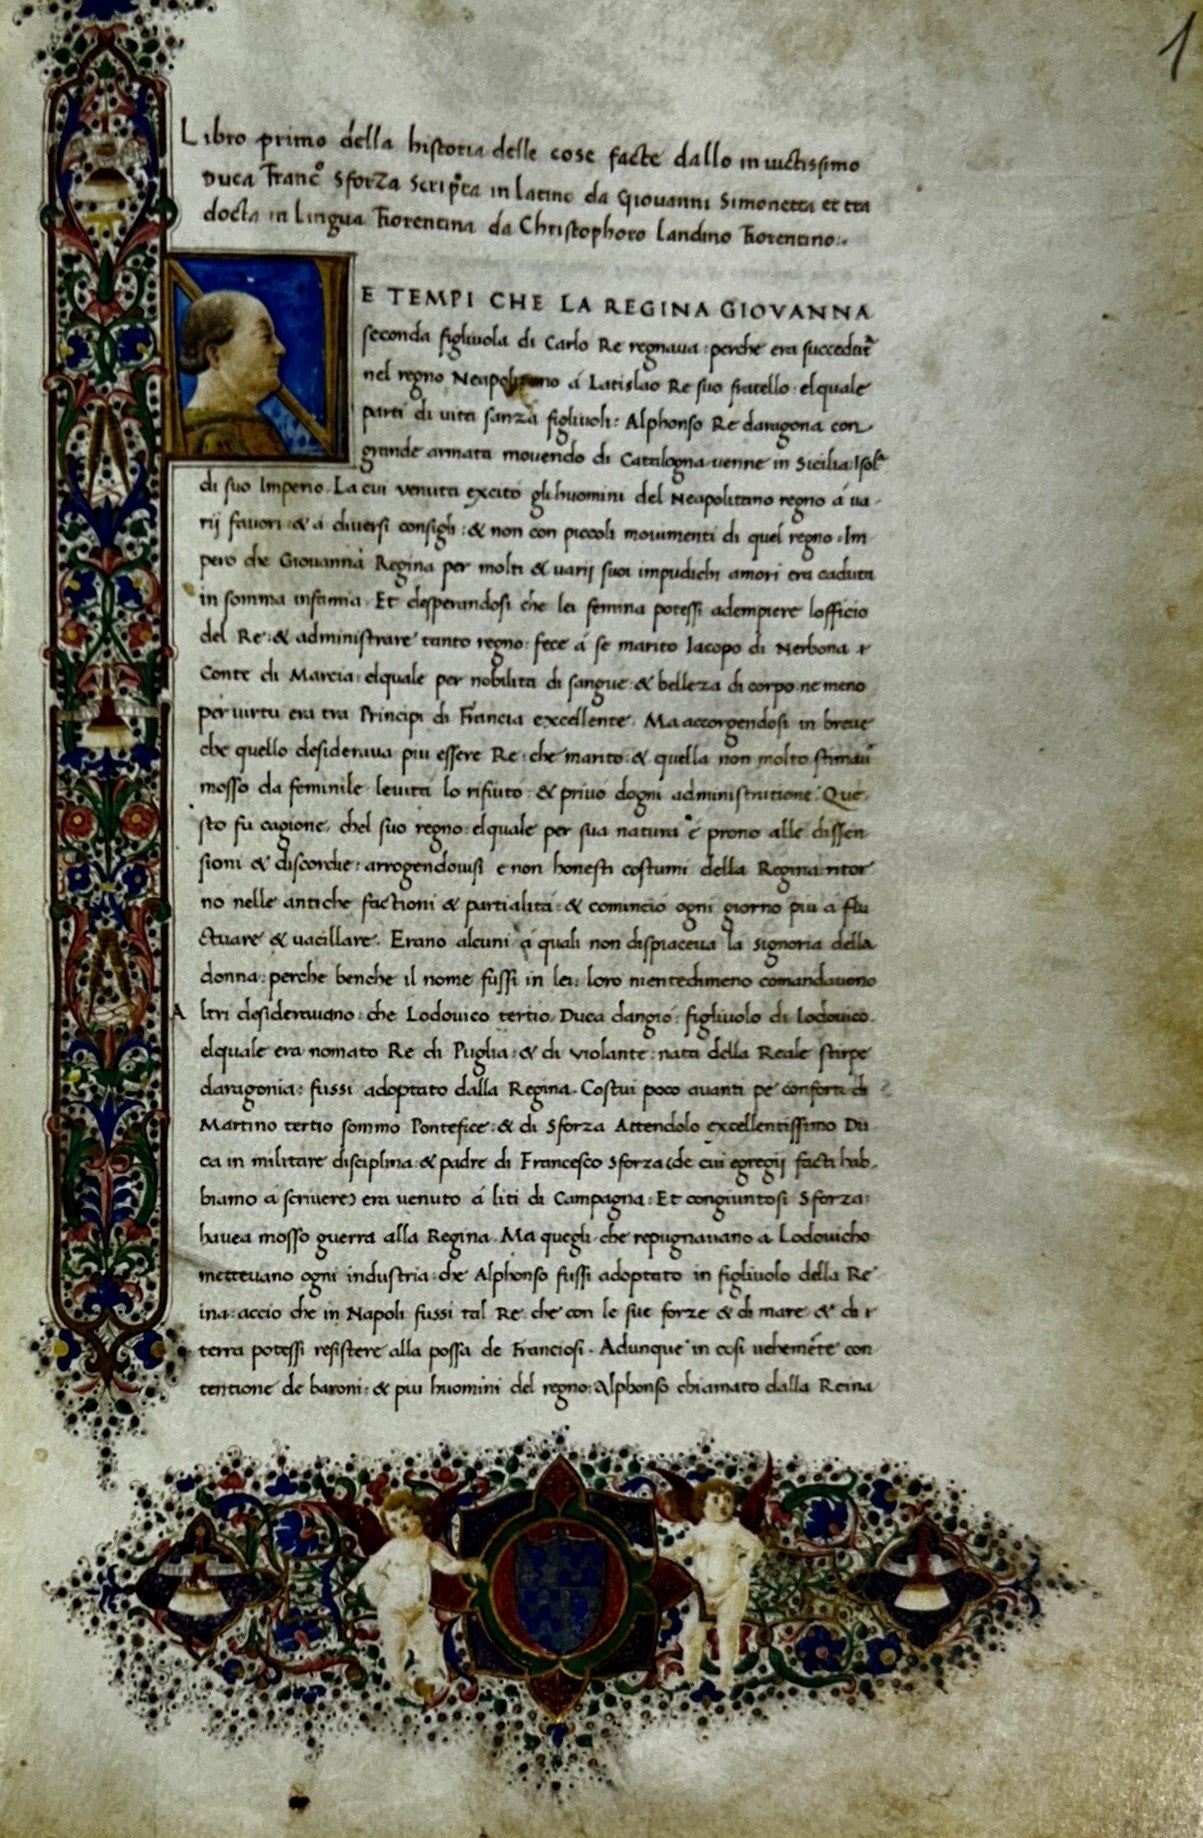 1
Libro primo della historia delle cose facte dallo inuictissimo
Duca Franc͠o Sforza Scrip̃ta in latino da Giouanni Simonetta et tra
docta in Lingua Fiorentina da Christophoro Landino Fiorentino:.
NE TEMPI CHE LA REGINA GIOVANNA
seconda figliuola di Carlo Re regnaua: perche era succeduta
nel regno Neapolitano á Latislao Re suo fratello: elquale
parti di uita sanza figliuoli: Alphonso Re daragona con
grande armata mouendo di Catalogna uenne in Sicilia Isola
di suo Imperio. La cui uenuta excitó gli huomini del Neapolitano regno á ua-
rij fauori: & á diuersi consigli: & non con piccoli mouimenti di quel regno. Im
pero che Giouanna Regina per molti & uarij suoi impudichi amori era caduta
in somma infamia. Et desperandosi che lei femina potessi adempiere lofficio
del Re: & administrare tanto regno: fece á se marito Iacopo di Nerbona
Conte di Marcia: elquale per nobilita di sangue: & belleza di corpo: ne meno
per uirtu era tra Principi di Francia excellente. Ma accorgendosi in breue
che quello desideraua piu essere Re: che marito: & quella non molto stimaua
mosso da feminile leuita lo rifiutó: & priuó dogni administratione. Que-
sto fu cagione, chel suo regno: elquale per sua natura é prono alle dissen
sioni & discordie: arrogendouisi e non honesti costumi della Regina: ritor
nó nelle antiche factioni & partialita: & cominció ogni giorno piu á flu
ctuare & uacillare. Erano alcuni á quali non dispiaceua la signoria della
donna: perche benche il nome fussi in lei: loro nientedimeno comandauono
Altri desiderauano: che Lodouico tertio Duca dangió: figliuolo di Lodouico.
elquale era nomato Re di Puglia: & di uiolante: nata della Reale stirpe
daragonia: fussi adoptato dalla Regina. Costui poco auanti pe conforti di
Martino tertio sommo Pontefice: & di Sforza Attendolo excellentissimo Du
ca in militare disciplina: & padre di Francesco Sforza (de cui egregij facti hab-
biamo á scriuere) era uenuto á liti di Campagna: Et congiuntosi Sforza:
hauea mosso guerra alla Regina. Ma quegli che repugnauano a Lodouicho
metteuano ogni industria: che Alphonso fussi adoptato in figliuolo della Re
ina: accio che in Napoli fussi tal Re: che con le sue forze & di mare & di
terra potessi resistere alla possa de Franciosi. Adunque in cosi uehemẽte con
tentione de baroni: & piu huomini del regno: Alphonso chiamato dalla Reina